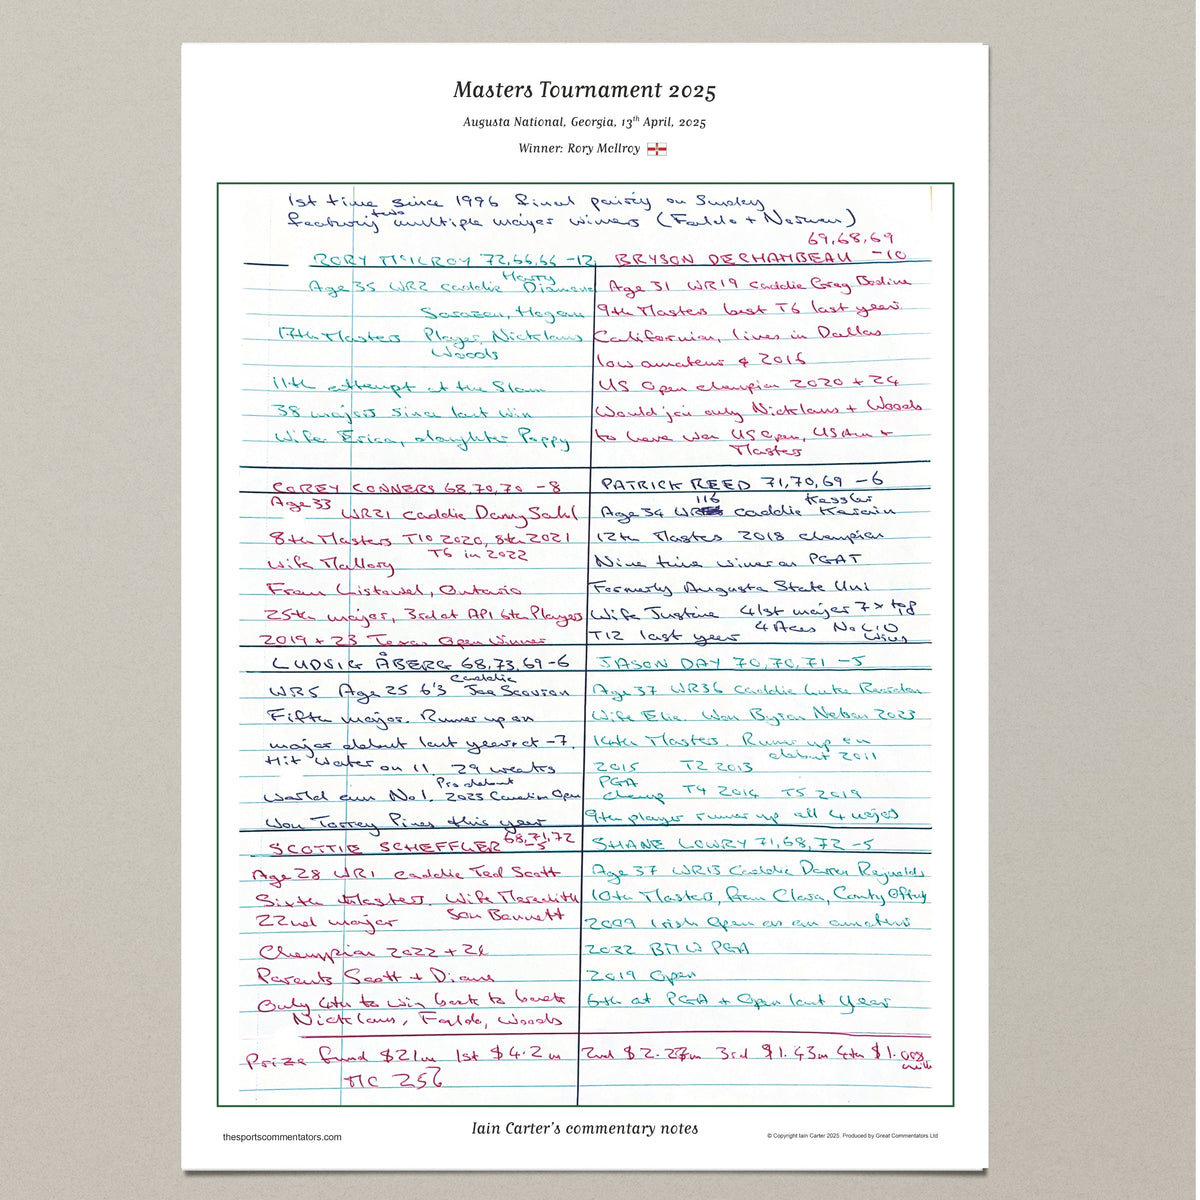 Masters Tournament 2025
Augusta National, Georgia, 13th April, 2025
Winner: Rory McIlroy
1st time since 1996 final pairing on Sunday
featuring two multiple major winners (Faldo + Norman)
RORY McILROY 72,66,66 -12
Age 35 WR2 caddie Harry Diamond
Sarazen, Hogan
17th Masters Player, Nicklaus
Woods
11th attempt at the Slam
38 majors since last win
Wife Erica, daughter Poppy
69,68,69
BRYSON DECHAMBEAU -10
Age 31 WR19 caddie Greg Bodine
9th Masters best T6 last year
Californian, lives in Dallas
low amateur 2016
US Open champion 2020 + 24
Would join only Nicklaus + Woods
to have won US Open, US Am +
Masters
COREY CONNERS 68,70,70 -8
Age 33 WR21 caddie Danny Sahl
8th Masters T10 2020, 8th 2021
T6 in 2022
Wife Mallory
From Listowel, Ontario
25th major, 3rd at API 6th Players
2019 + 23 Texas Open Winner
PATRICK REED 71,70,69 -6
116 Kessler
Age 34 WR caddie Karain
12th Masters 2018 champion
Nine time winner on PGAT
Formerly Augusta State Uni
Wife Justine 41st major 7 x top 8
T12 last year 4 Aces No LIV
Wins
LUDVIG ÅBERG 68,73,69 -6
WR5 Age 25 6'3 caddie Joe Skovron
Fifth major. Runner up on
major debut last year at -7.
Hit Water on 11. 29 weeks
World am No1. Pro debut 2023 Canadian Open
Won Torrey Pines this year
JASON DAY 70,70,71 -5
Age 37 WR36 caddie Luke Reardon
Wife Ellie. Won Byron Nelson 2023
14th Masters. Runner up on
debut 2011
2015 T2 2013
PGA
champ T4 2016 T5 2019
9th player runner up all 4 majors
SCOTTIE SCHEFFLER 68,71,72
-5
Age 28 WR1 caddie Ted Scott
Sixth Masters. Wife Meredith
22nd major Son Bennett
Champion 2022 + 24
Parents Scott + Diane
Only 4th to win back to back
Nicklaus, Faldo, Woods
SHANE LOWRY 71,68,72 -5
Age 37 WR13 Caddie Darren Reynolds
10th Masters, from Clara, County Offaly
2009 Irish Open as an amateur
2022 BMW PGA
2019 Open
6th at PGA + Open last Year
Prize fund $21m 1st $4.2m 2nd $2.27m 3rd $1.43m 4th $1.008
mill
MC 256
Iain Carter's commentary notes
thesportscommentators.com
© Copyright Iain Carter 2025. Produced by Great Commentators Ltd